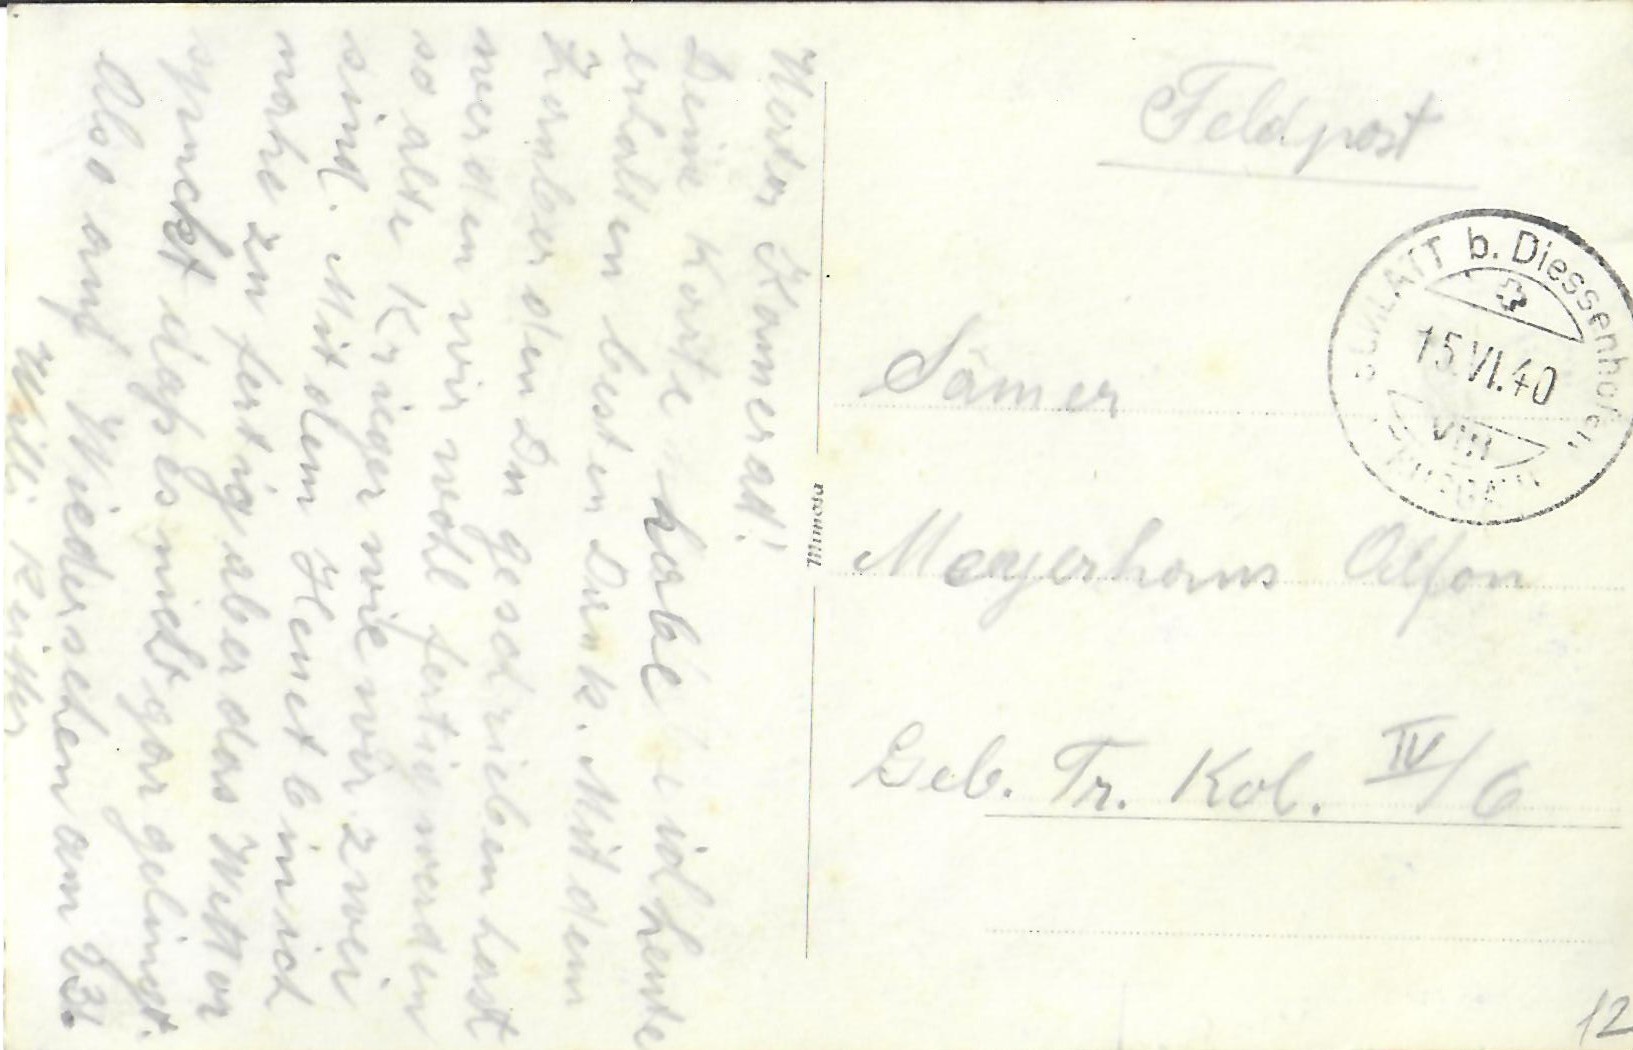 Feldpost
SCHLATT b. Diessenhofen
15.VI.40
VIII
THURGAU
Säumer
Mayerhans Alfon
Geb. Tr. Kol. IV/6
Mimosa
12
Werter Kamerad!
Deine Karte habe ich heute
erhalten besten Dank. Mit dem
den Du geschrieben hast
werden wir wohl fertig werden
so alte Krieger wie wir zwei
sind. Mit dem Heuet bin ich
nahe zu fertig aber das Wetter
spuckt dass es nicht gar gelingt.
Also auf Wiedersehen am 23.
Willi